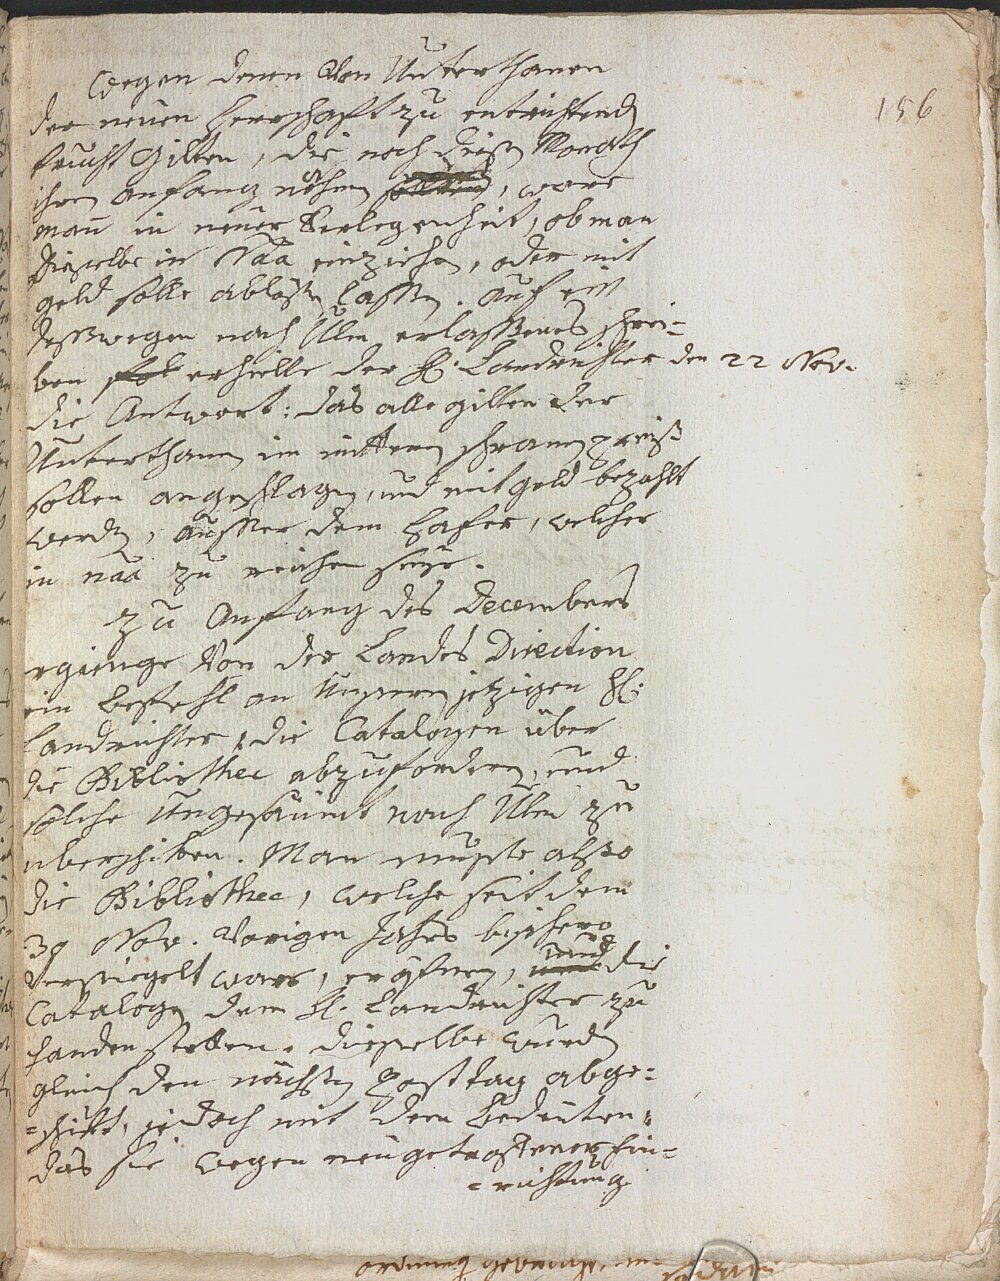 156
Wegen denen von Unterthanen
der neuen Herrschaft zu entrichtend
frucht Gilten, die noch diesen Monath
ihren anfang nehmen, ware
man in neuer Verlegenheit, ob man
dieselbe in Naa einziehen, oder mit
geld solle ablösen lassen. Auf ein
deßwegen nach Ulm erlassenes schrei=
ben erhielte der H. Landrichter den 22 Nov.
die Antwort: das alle gilten der
Unterthanen im mittern schrannenpreiß
sollen angeschlagen, und mit geld bezahlt
werden, ausser dem Hafer, welcher
in naa zu reichen seye.
Zu Anfang des Decembers
ergienge von der Landes Direction
ein Befehl an Unsern jetzigen H.
Landrichter, die Catalogen über
die Bibliothec abzufordern, und
solche Ungesäumt nach Ulm zu
überschiken. Man mußte also
die Bibliothec, welche seit dem
30 Nov. vorigen Jahrs bishero
versiegelt ware, eröfnen, und die
Catalogen dem H. Landrichter zu
handen stellen. dieselbe wurden
gleich den nächsten Posttag abge=
=schikt, jedoch mit dem Bedeuten,
das sie wegen neu getroffener Ein=
=richtung